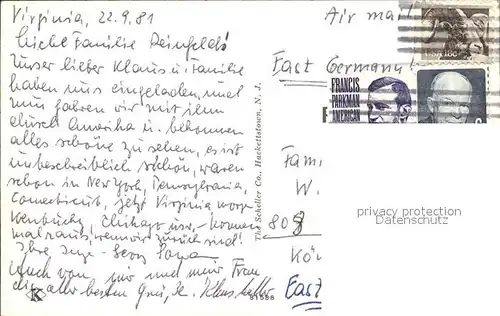 Virginia, 22.9.81
Liebe Familie Reinfelds!
Unser lieber Klaus u. Familie
haben uns eingeladen, und
nun fahren wir mit ihm
durch Amerika u. bekommen
alles schöne zu sehen, es ist
unbeschreiblich schön, waren
schon in New York, Pennsylvania,
Connecticut, jetzt Virginia
Chikago usw., kommen
mal raus, wenn wir zurück sind!
Ihre Inge
Auch von mir und meiner Frau
die aller besten Grüße. Klaus
Air mail
USA 18c
East Germany!
FRANCIS
PARKMAN
AMERICAN
Fam
W.
808
Kö
East
The Scheller Co., Hackettstown, N. J.
K
91588
privacy protection
Datenschutz